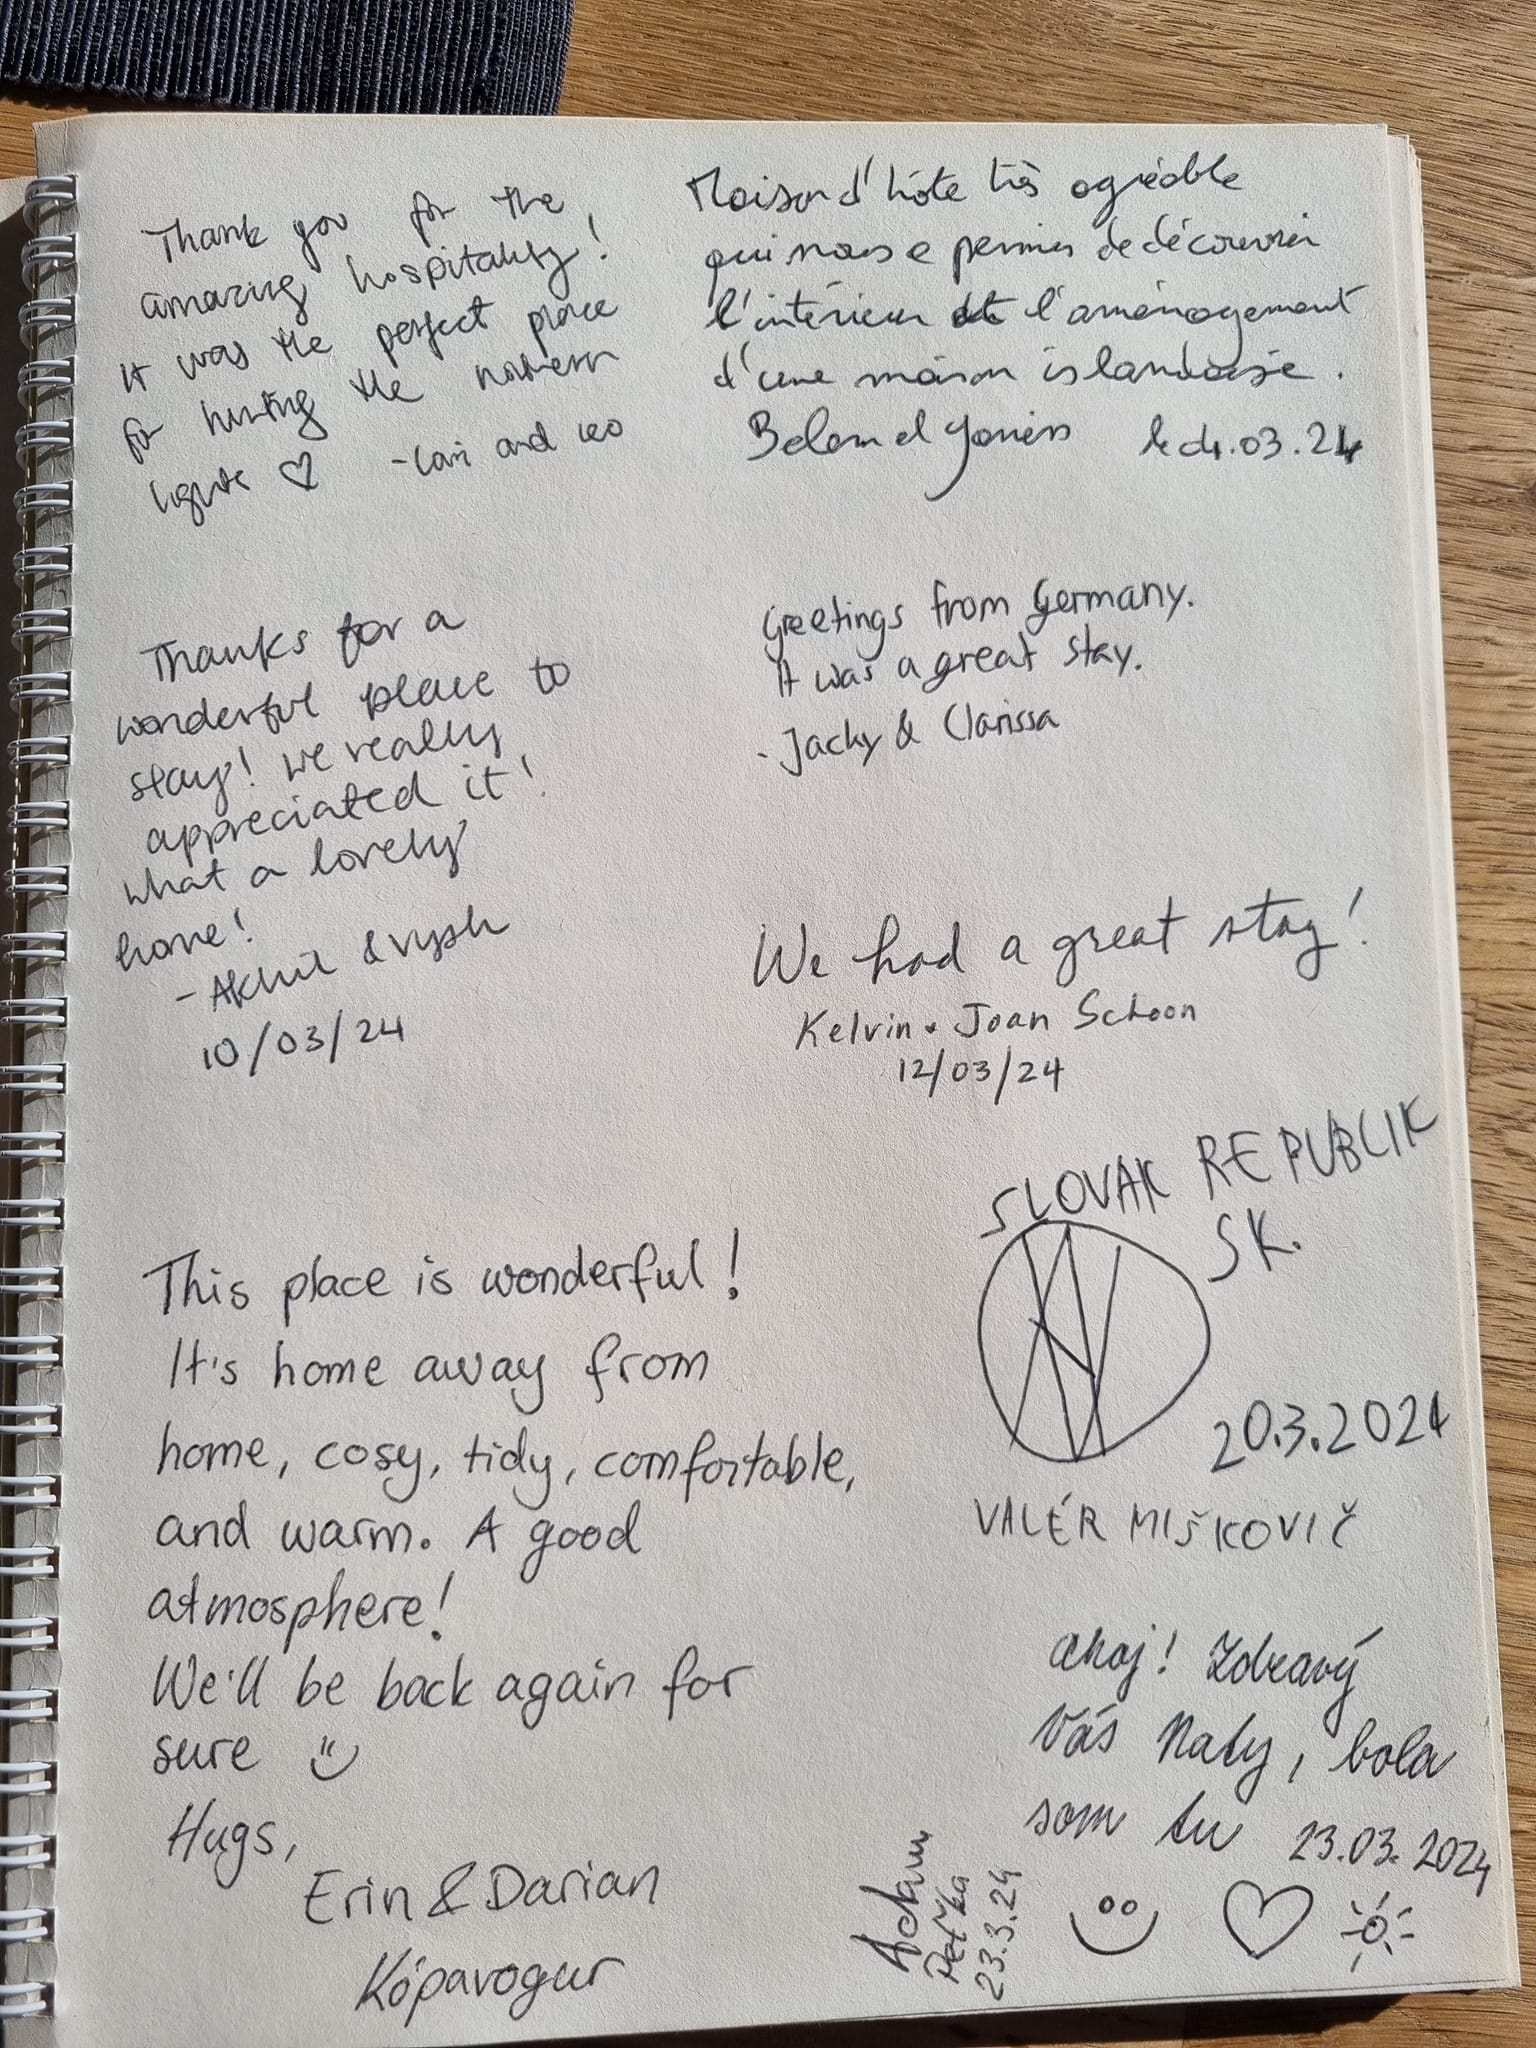 Thank you for the
amazing hospitality!
It was the perfect place
for hunting the northern
lights ♡ - and
Maison d'hôte très agréable
qui nous a permis de découvrir
l'intérieur et l'aménagement
d'une maison islandaise.
et le 03.24
Thanks for a
wonderful place to
stay! We really
appreciated it!
What a lovely
home!
- Akhil &
10/03/24
Greetings from Germany.
It was a great stay.
- Jacky & Clarissa
We had a great stay!
Kelvin & Joan Schoon
12/03/24
This place is wonderful!
It's home away from
home, cosy, tidy, comfortable,
and warm. A good
atmosphere!
We'll be back again for
sure
Hugs,
Erin & Darian
Kópavogur
SLOVAK REPUBLIK
SK.
20.3.2024
VALÉR MIŠKOVIČ
ahoj! Zdravý
Vás Naty, bola
som tu 23.03.2024
Adam
Peťka
23.3.24